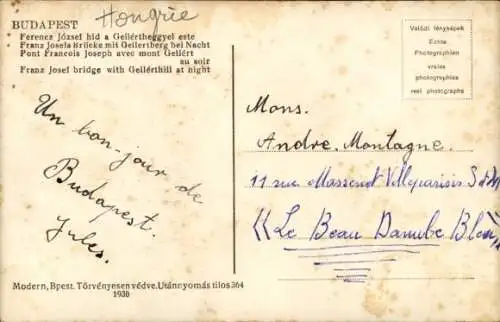 BUDAPEST Hongrie
Ferencz József hid a Gellértheggyel este
Franz Josefs Brücke mit Gellertberg bei Nacht
Pont Francois Joseph avec mont Gellért
au soir
Franz Josef bridge with Gellérthill at night
Valódi fényképek
Echte
Photographien
vraies
photographies
real photographs
Un bon-jour de
Budapest.
Jules.
Mons.
Andre. Montagne.
11 rue Massenet Villeparisis S et M
"Le Beau Danube Bleu"
Modern, Bpest. Törvényesen védve. Utánnyomás tilos 364
1938